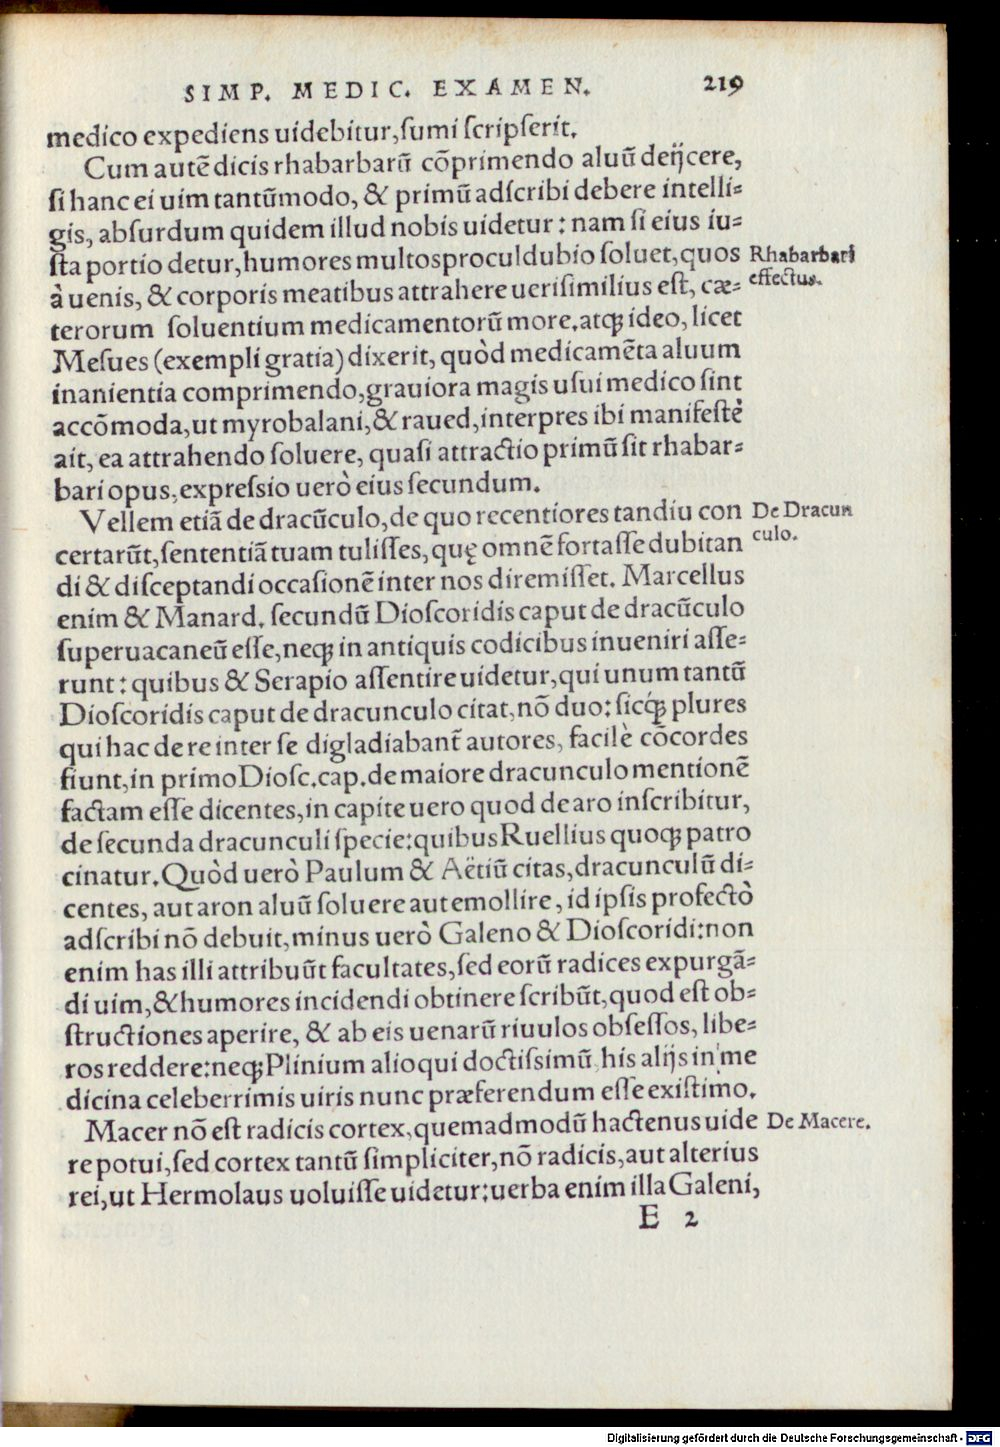 SIMP. MEDIC. EXAMEN. 219
medico expediens uidebitur, sumi scripserit.
Cum autē dicis rhabarbarū cōprimendo aluū deijcere,
si hanc ei uim tantūmodo, & primū adscribi debere intelli=
gis, absurdum quidem illud nobis uidetur: nam si eius iu=
sta portio detur, humores multos proculdubio soluet, quos
Rhabarbari
effectus.
à uenis, & corporis meatibus attrahere uerisimilius est, cæ=
terorum soluentium medicamentorū more. atq; ideo, licet
Mesues (exempli gratia) dixerit, quòd medicamēta aluum
inanientia comprimendo, grauiora magis usui medico sint
accōmoda, ut myrobalani, & raued, interpres ibi manifestè
ait, ea attrahendo soluere, quasi attractio primū sit rhabar=
bari opus, expressio uerò eius secundum.
Vellem etiā de dracūculo, de quo recentiores tandiu con
De Dracun
culo.
certarūt, sententiā tuam tulisses, quę omnē fortasse dubitan
di & disceptandi occasionē inter nos diremisset. Marcellus
enim & Manard. secundū Dioscoridis caput de dracūculo
superuacaneū esse, neq; in antiquis codicibus inueniri asse=
runt: quibus & Serapio assentire uidetur, qui unum tantū
Dioscoridis caput de dracunculo citat, nō duo: sicq́; plures
qui hac de re inter se digladiabant̄ autores, facilè cōcordes
fiunt, in primo Diosc. cap. de maiore dracunculo mentionē
factam esse dicentes, in capite uero quod de aro inscribitur,
de secunda dracunculi specie: quibus Ruellius quoq; patro
cinatur. Quòd uerò Paulum & Aëtiū citas, dracunculū di=
centes, aut aron aluū soluere aut emollire, id ipsis profectò
adscribi nō debuit, minus uerò Galeno & Dioscoridi: non
enim has illi attribuūt facultates, sed eorū radices expurgā=
di uim, & humores incidendi obtinere scribūt, quod est ob=
structiones aperire, & ab eis uenarū riuulos obsessos, libe=
ros reddere: neq; Plinium alioqui doctissimū his alijs in me
dicina celeberrimis uiris nunc præferendum esse existimo.
Macer nō est radicis cortex, quemadmodū hactenus uide
De Macere.
re potui, sed cortex tantū simpliciter, nō radicis, aut alterius
rei, ut Hermolaus uoluisse uidetur: uerba enim illa Galeni,
E 2
Digitalisierung gefördert durch die Deutsche Forschungsgemeinschaft - DFG